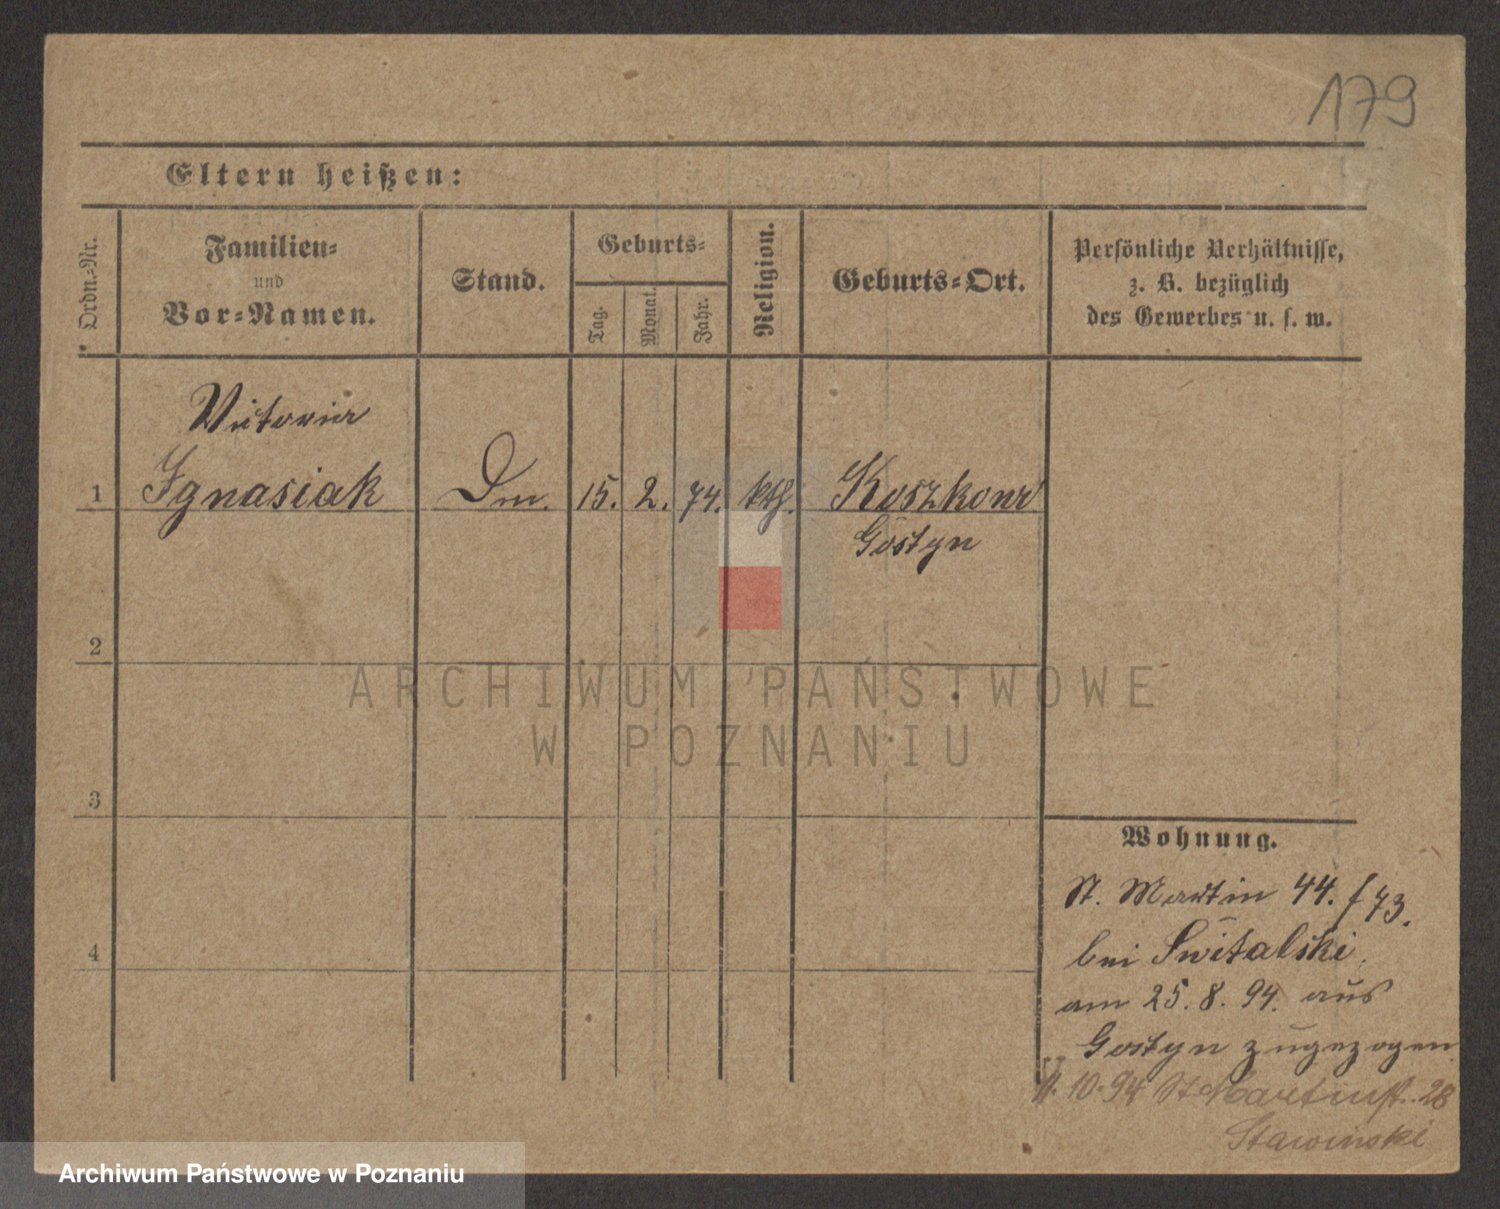 179
Eltern heißen:
Ordn.-Nr.
Familien-
und
Vor-Namen.
Stand.
Geburts-
Tag.
Monat.
Jahr.
Religion.
Geburts-Ort.
Persönliche Verhältnisse,
z. B. bezüglich
des Gewerbes u. s. w.
Victoria
1 Ignasiak Dm. 15. 2. 74. kth. Koszkowo
Gostyn
2
3
4
ARCHIWUM PAŃSTWOWE
W POZNANIU
Wohnung.
St. Martin 44. / 73.
bei Switalski
am 25. 8. 94. aus
Gostyn zugezogen
10.94 St Martinst. 28
Stawinski
Archiwum Państwowe w Poznaniu